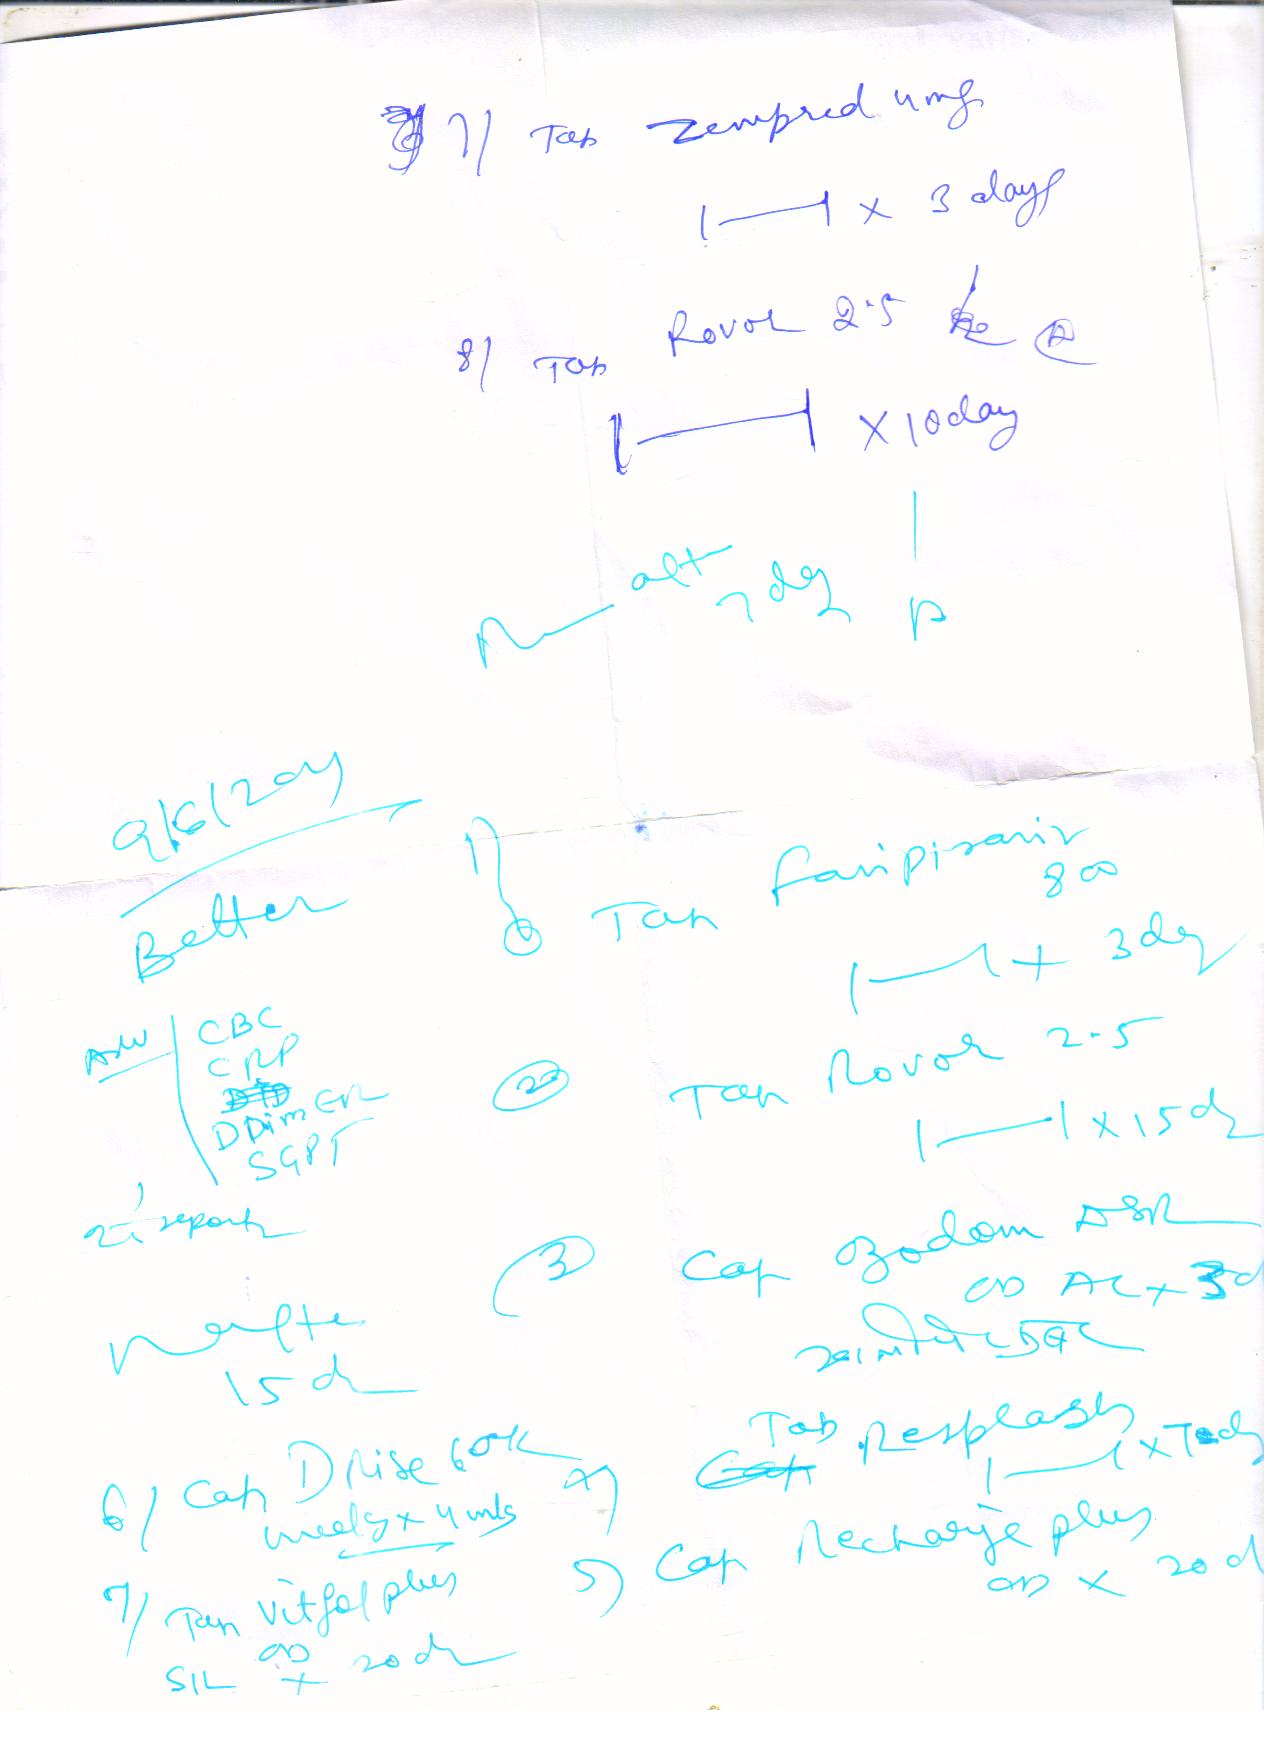 7/ Tab Zempred 4mg
1—1 x 3 days
8/ Tab Rovor 2.5
1—1 x 10 day
alt
7 day
9/6/2021
Better
Tab Favipiravir
800
1—1 + 3 day
Adv CBC
CRP
D Dimer
SGPT
report
2 Tab Rovor 2.5
1—1 x 15 d
3 Cap Ozodom DSR
OD AC x 3 d
15 d
4) Tab Resplash
1—1 x
5) Cap Recharge plus
OD x 20 d
6/ Cap D Rise 60K
weekly x 4 wks
7/ Tab Vitfol plus
OD
S/L x 20 d